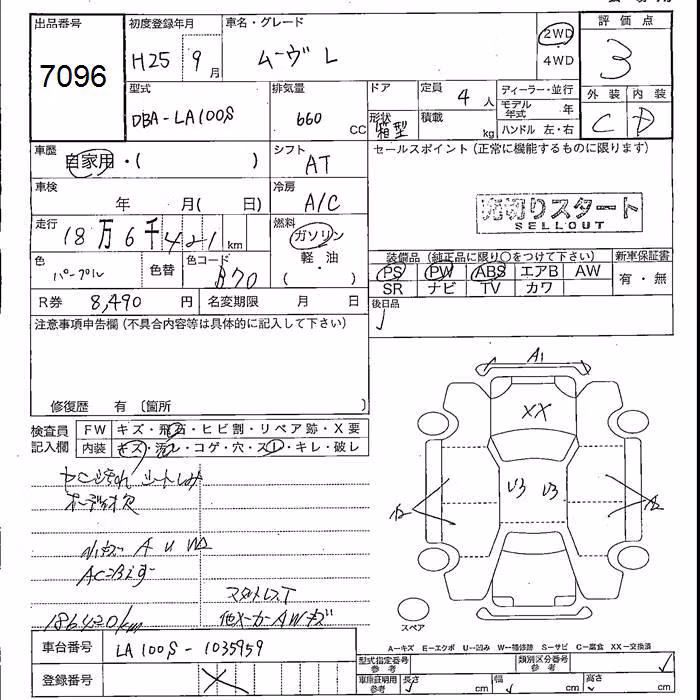 出品番号 初度登録年月 車名・グレード 評価点
7096 H25 9月 ムーヴ L 2WD 4WD 3
型式 排気量 ドア 定員 4人 ディーラー・並行 外装 内装
DBA-LA100S 660 CC 形状 箱型 積載 kg モデル年式 年 C D
ハンドル 左・右
車歴 自家用・( ) シフト AT セールスポイント(正常に機能するものに限ります)
車検 年 月( 日) 冷房 A/C
売切りスタート
SELLOUT
走行 18万6千421km 燃料 ガソリン・軽油 ( )
色 パープル 色替 色コード B70
装備品(純正品に限り〇をつけて下さい) 新車保証書
PS PW ABS エアB AW 有・無
SR ナビ TV カワ
R券 8,490円 名変期限 月 日 後日品
注意事項申告欄(不具合内容等は具体的に記入して下さい)
修復歴 有 〔箇所 〕
検査員記入欄 FW キズ・飛石・ヒビ割・リペア跡・X要
内装 キズ・汚レ・コゲ・穴・スレ・キレ・破レ
A1
XX
U3 U3
シートしみ
オーディオ欠
A U W
186420km
他メーカーAWキズ
スペア
車台番号 LA100S-1035959
登録番号
A-キズ E-エクボ U-凹み W-補修跡 S-サビ C-腐食 XX-交換済
型式指定番号 参考 類別区分番号 参考
車庫証明用 参考 長さ cm 幅 cm 高さ cm